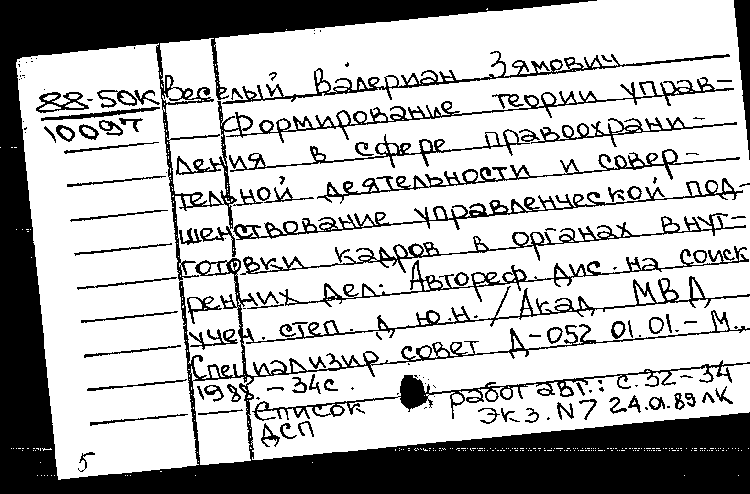 88-50К Веселый, Валериан Зямович
10097 Формирование теории управ=
ления в сфере правоохрани-
тельной деятельности и совер-
шенствование управленческой под-
готовки кадров в органах внут=
ренних дел: Автореф. дис. на соиск
учен. степ. д.ю.н. / Акад. МВД,
Специализир. совет Д-052 01.01. - М.,
1988. - 34с.
Список работ авт.: с. 32-34
ДСП Экз. N7 24.01.89 ЛК
5